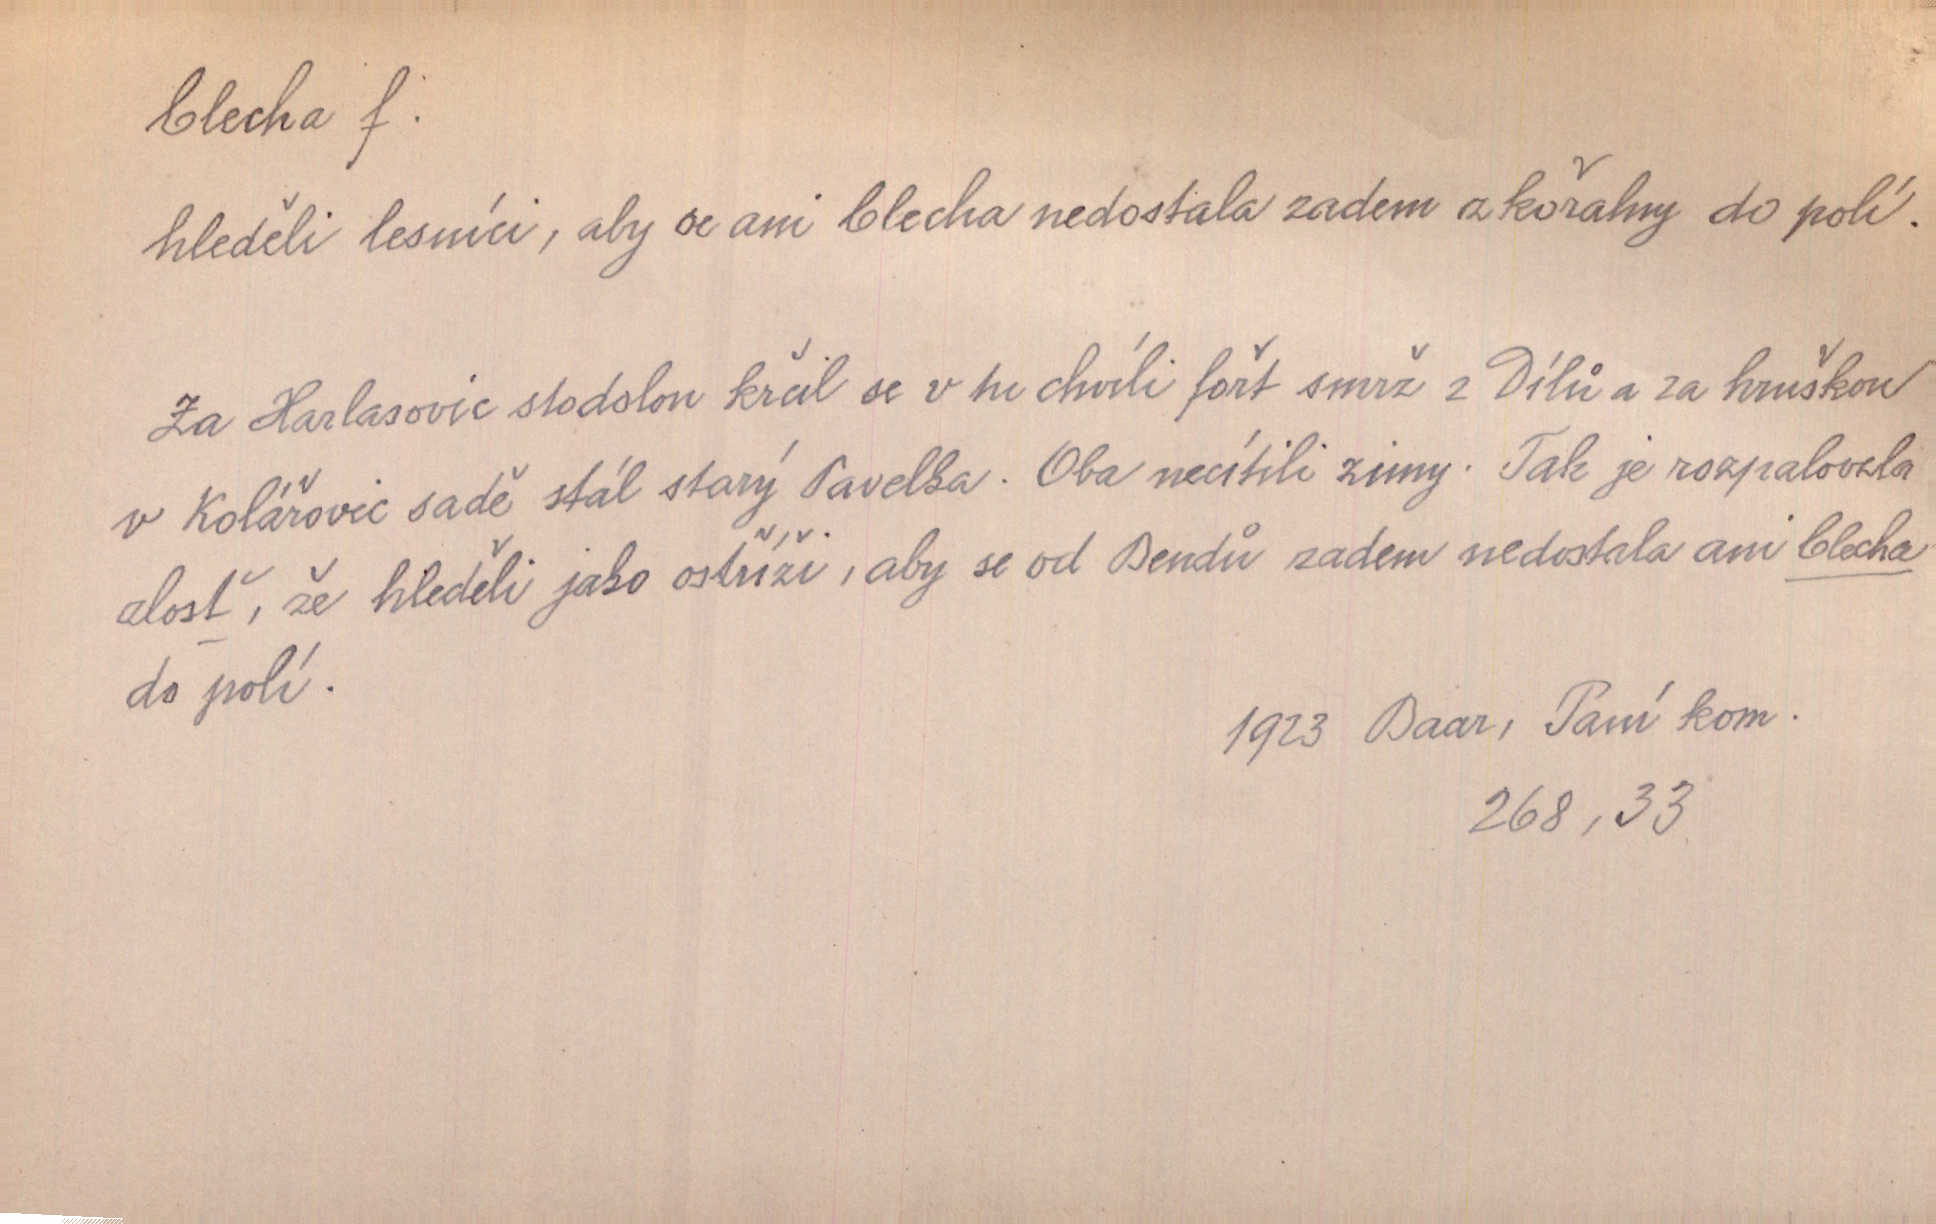 blecha f.
hleděli lesníci, aby se ani blecha nedostala zadem z kořalny do polí.
Za Harlasovic stodolou krčil se v tu chvíli fořt smrž z Dílů a za hruškou
v Kolářovic sadě stál starý Pavelka. Oba necítili zimy. Tak je rozpalovala
zlosť, že hleděli jako ostříži, aby se od Bendů zadem nedostala ani blecha
do polí.
1923 Baar, Paní kom.
268, 33